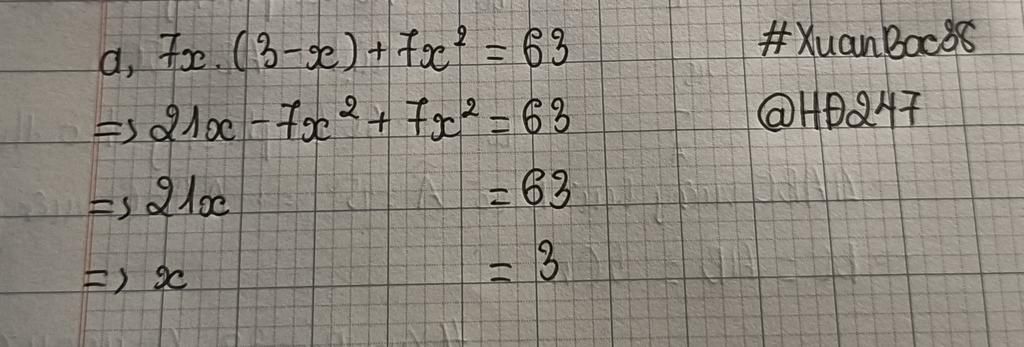 a, 7x.(3-x)+7x² = 63
=> 21x - 7x² + 7x² = 63
=> 21x = 63
=> x = 3
#XuanBac86
@HĐ247